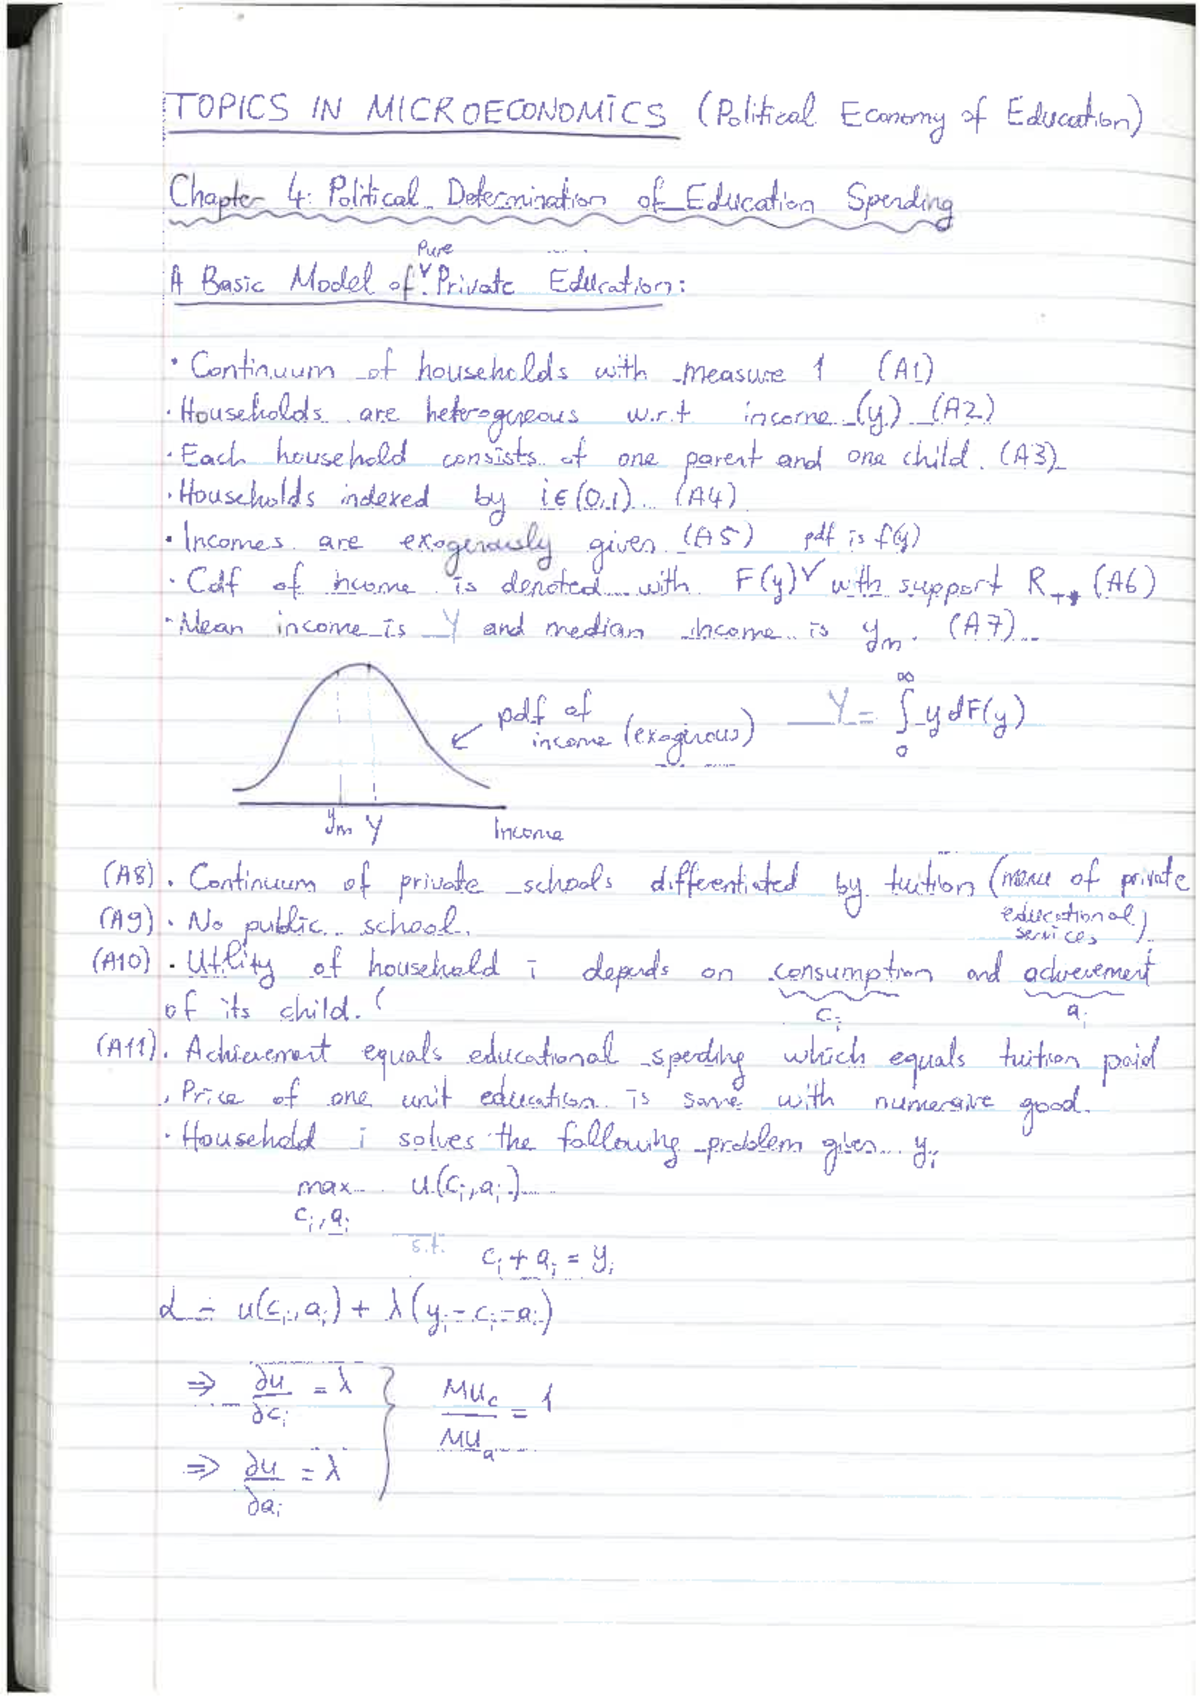 TOPICS IN MICROECONOMICS (Political Economy of Education)
Chapter 4: Political Determination of Education Spending
A Basic Model of Pure Private Education:
· Continuum of households with measure 1 (A1)
· Households are heterogeneous w.r.t income (y) (A2)
· Each household consists of one parent and one child. (A3)
· Households indexed by i∈(0,1) (A4)
· Incomes are exogenously given (A5) pdf is f(y)
· Cdf of income is denoted with F(y) with support R₊₊ (A6)
· Mean income is Y and median income is yₘ. (A7)
pdf of income (exogenous)
Y = ∫₀^∞ y dF(y)
yₘ Y Income
(A8) · Continuum of private schools differentiated by tuition (menu of private educational services)
(A9) · No public school.
(A10) · Utility of household i depends on consumption and achievement
cᵢ aᵢ
of its child. (
(A11) · Achievement equals educational spending which equals tuition paid
· Price of one unit education is same with numeraire good.
· Household i solves the following problem given yᵢ
max u(cᵢ,aᵢ)
cᵢ,aᵢ
s.t. cᵢ + aᵢ = yᵢ
ℒ = u(cᵢ,aᵢ) + λ(yᵢ-cᵢ-aᵢ)
⇒ ∂u/∂cᵢ = λ } MU_c/MU_a = 1
⇒ ∂u/∂aᵢ = λ